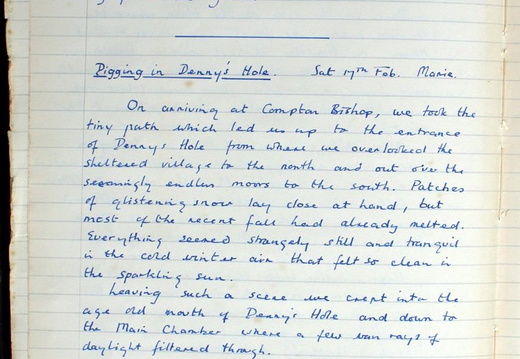 Digging in Denny's Hole. Sat 17th Feb. Marie.
On arriving at Compton Bishop, we took the
tiny path which led us up to the entrance
of Denny's Hole from where we overlooked the
sheltered village to the north and out over the
seemingly endless moors to the south. Patches
of glistening snow lay close at hand, but
most of the recent fall had already melted.
Everything seemed strangely still and tranquil
in the cold winter air that felt so clean in
the sparkling sun.
Leaving such a scene we crept into the
age old mouth of Denny's Hole and down to
the Main Chamber where a few wan rays of
daylight filtered through.